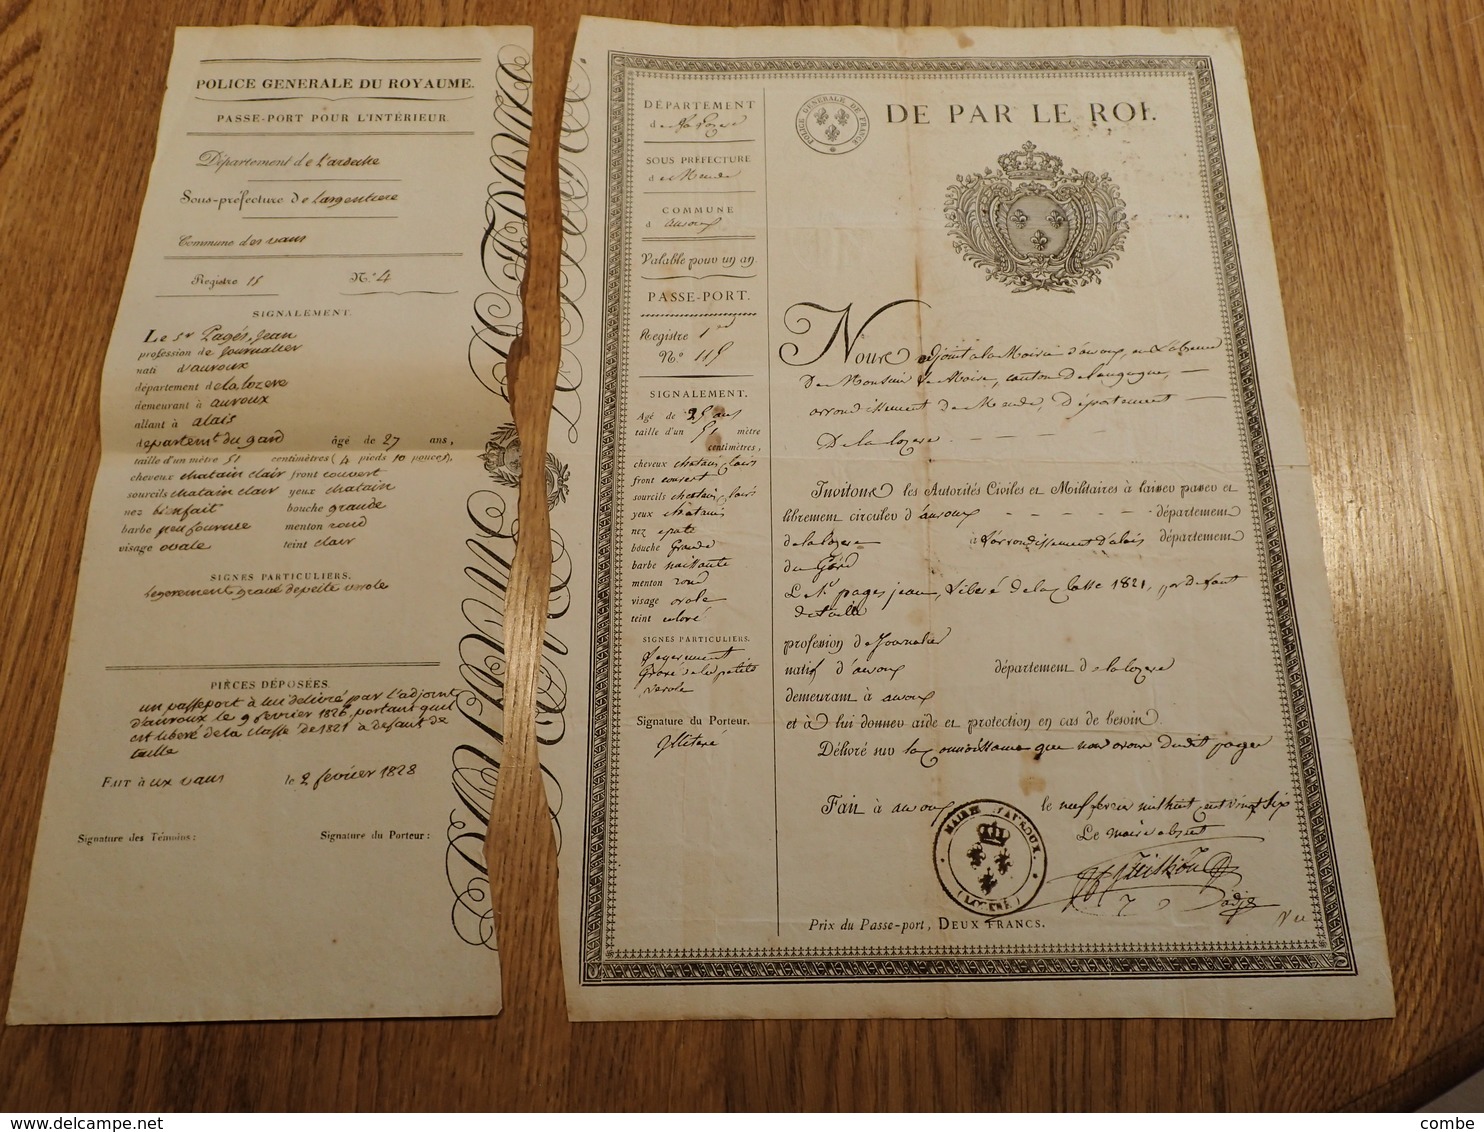 POLICE GENERALE DU ROYAUME.
PASSE-PORT POUR L'INTÉRIEUR
Département de L'ardeche
Sous-préfecture de Largentiere
Commune des vans
Registre 15 N.° 4
SIGNALEMENT.
Le Sr Pagés, Jean
profession de Journalier
nati d'auroux
département de la lozere
demeurant à auroux
allant à alais
departemt du gard âgé de 27 ans,
taille d'un mètre 51 centimètres (4 pieds 10 pouces),
cheveux chatain clair front couvert
sourcils chatain clair yeux chatain
nez bienfait bouche grande
barbe peu fournie menton rond
visage ovale teint clair
SIGNES PARTICULIERS.
legerement gravé de petite verole
PIÈCES DÉPOSÉES.
un passeport à lui délivré par l'adjoint
d'auroux le 9 février 1826, portant quil
est libéré de la classe de 1821 à défaut de
taille
FAIT à ux vans le 2 fevrier 1828
Signature des Témoins: Signature du Porteur:
DÉPARTEMENT
de La Lozere
SOUS PRÉFECTURE
de Mende
COMMUNE
d auroux
Valable pour un an
PASSE-PORT.
Registre 1er
N.° 115
SIGNALEMENT.
Agé de 25 ans
taille d'un 51 mètre
centimètres
cheveux chatain clairs
front couvert
sourcils chatain clairs
yeux chatains
nez epaté
bouche Grande
barbe naissante
menton rond
visage ovale
teint coloré
SIGNES PARTICULIERS.
Legerement
Gravé de la petite
verole
Signature du Porteur.
Illiteré
POLICE GÉNÉRALE DE FRANCE
DE PAR LE ROI.
Nous adjoint a la Mairie d'auroux, en L'absence
De Monsieur le Maire, canton de Langogne,
arrondissement de Mende, Département
De la lozere
Invitons les Autorités Civiles et Militaires à laisser passer et
librement circuler d'auroux département
de la lozere à L'arrondissement d'alais département
du Gard
Le Sr pages jean, Liberé de la Classe 1821, par defaut
de taille
profession de Journalier
natif d'auroux département de la lozere
demeurant à auroux
et à lui donner aide et protection en cas de besoin.
Délivré sur la connoissance que nous avons dudit pages
Fait à auroux le neuf fevrier mil huit cent vingt six
Le maire absent
MAIRIE D'AUROUX. (LOZERE)
Prix du Passe-port, DEUX FRANCS.
combe